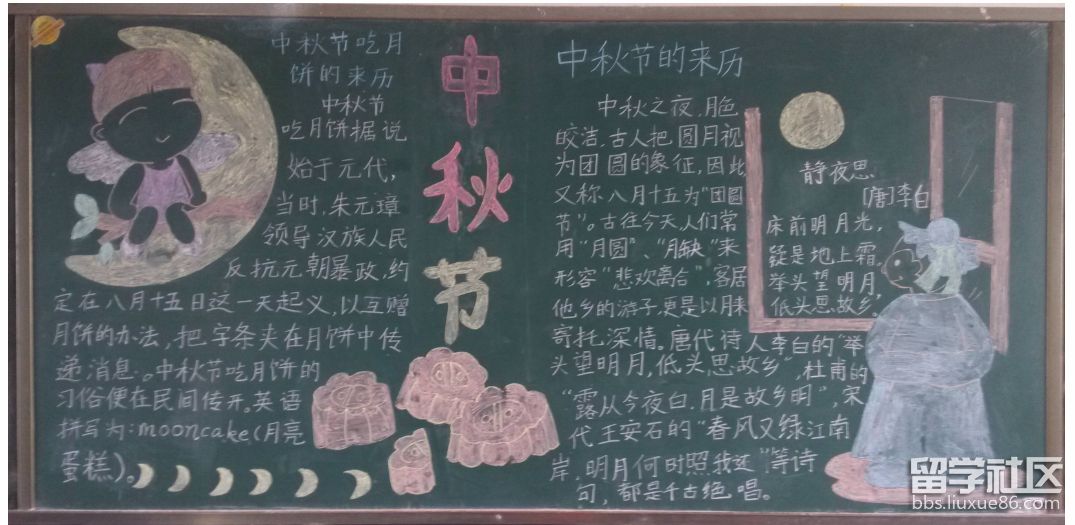 中秋节吃月
饼的来历
中秋节
吃月饼据说
始于元代，
当时，朱元璋
领导汉族人民
反抗元朝暴政，约
定在八月十五日这一天起义，以互赠
月饼的办法，把字条夹在月饼中传
递消息。中秋节吃月饼的
习俗便在民间传开。英语
拼写为：mooncake（月亮
蛋糕）。
中
秋
节
中秋节的来历
中秋之夜，月色
皎洁，古人把圆月视
为团圆的象征，因此
又称八月十五为“团圆
节”。古往今天人们常
用“月圆”、“月缺”来
形容“悲欢离合”，客居
他乡的游子，更是以月来
寄托深情。唐代诗人李白的“举
头望明月，低头思故乡”，杜甫的
“露从今夜白，月是故乡明”，宋
代王安石的“春风又绿江南
岸，明月何时照我还”等诗
句，都是千古绝唱。
静夜思
[唐]李白
床前明月光，
疑是地上霜。
举头望明月，
低头思故乡。
留学社区
bbs.liuxue86.com